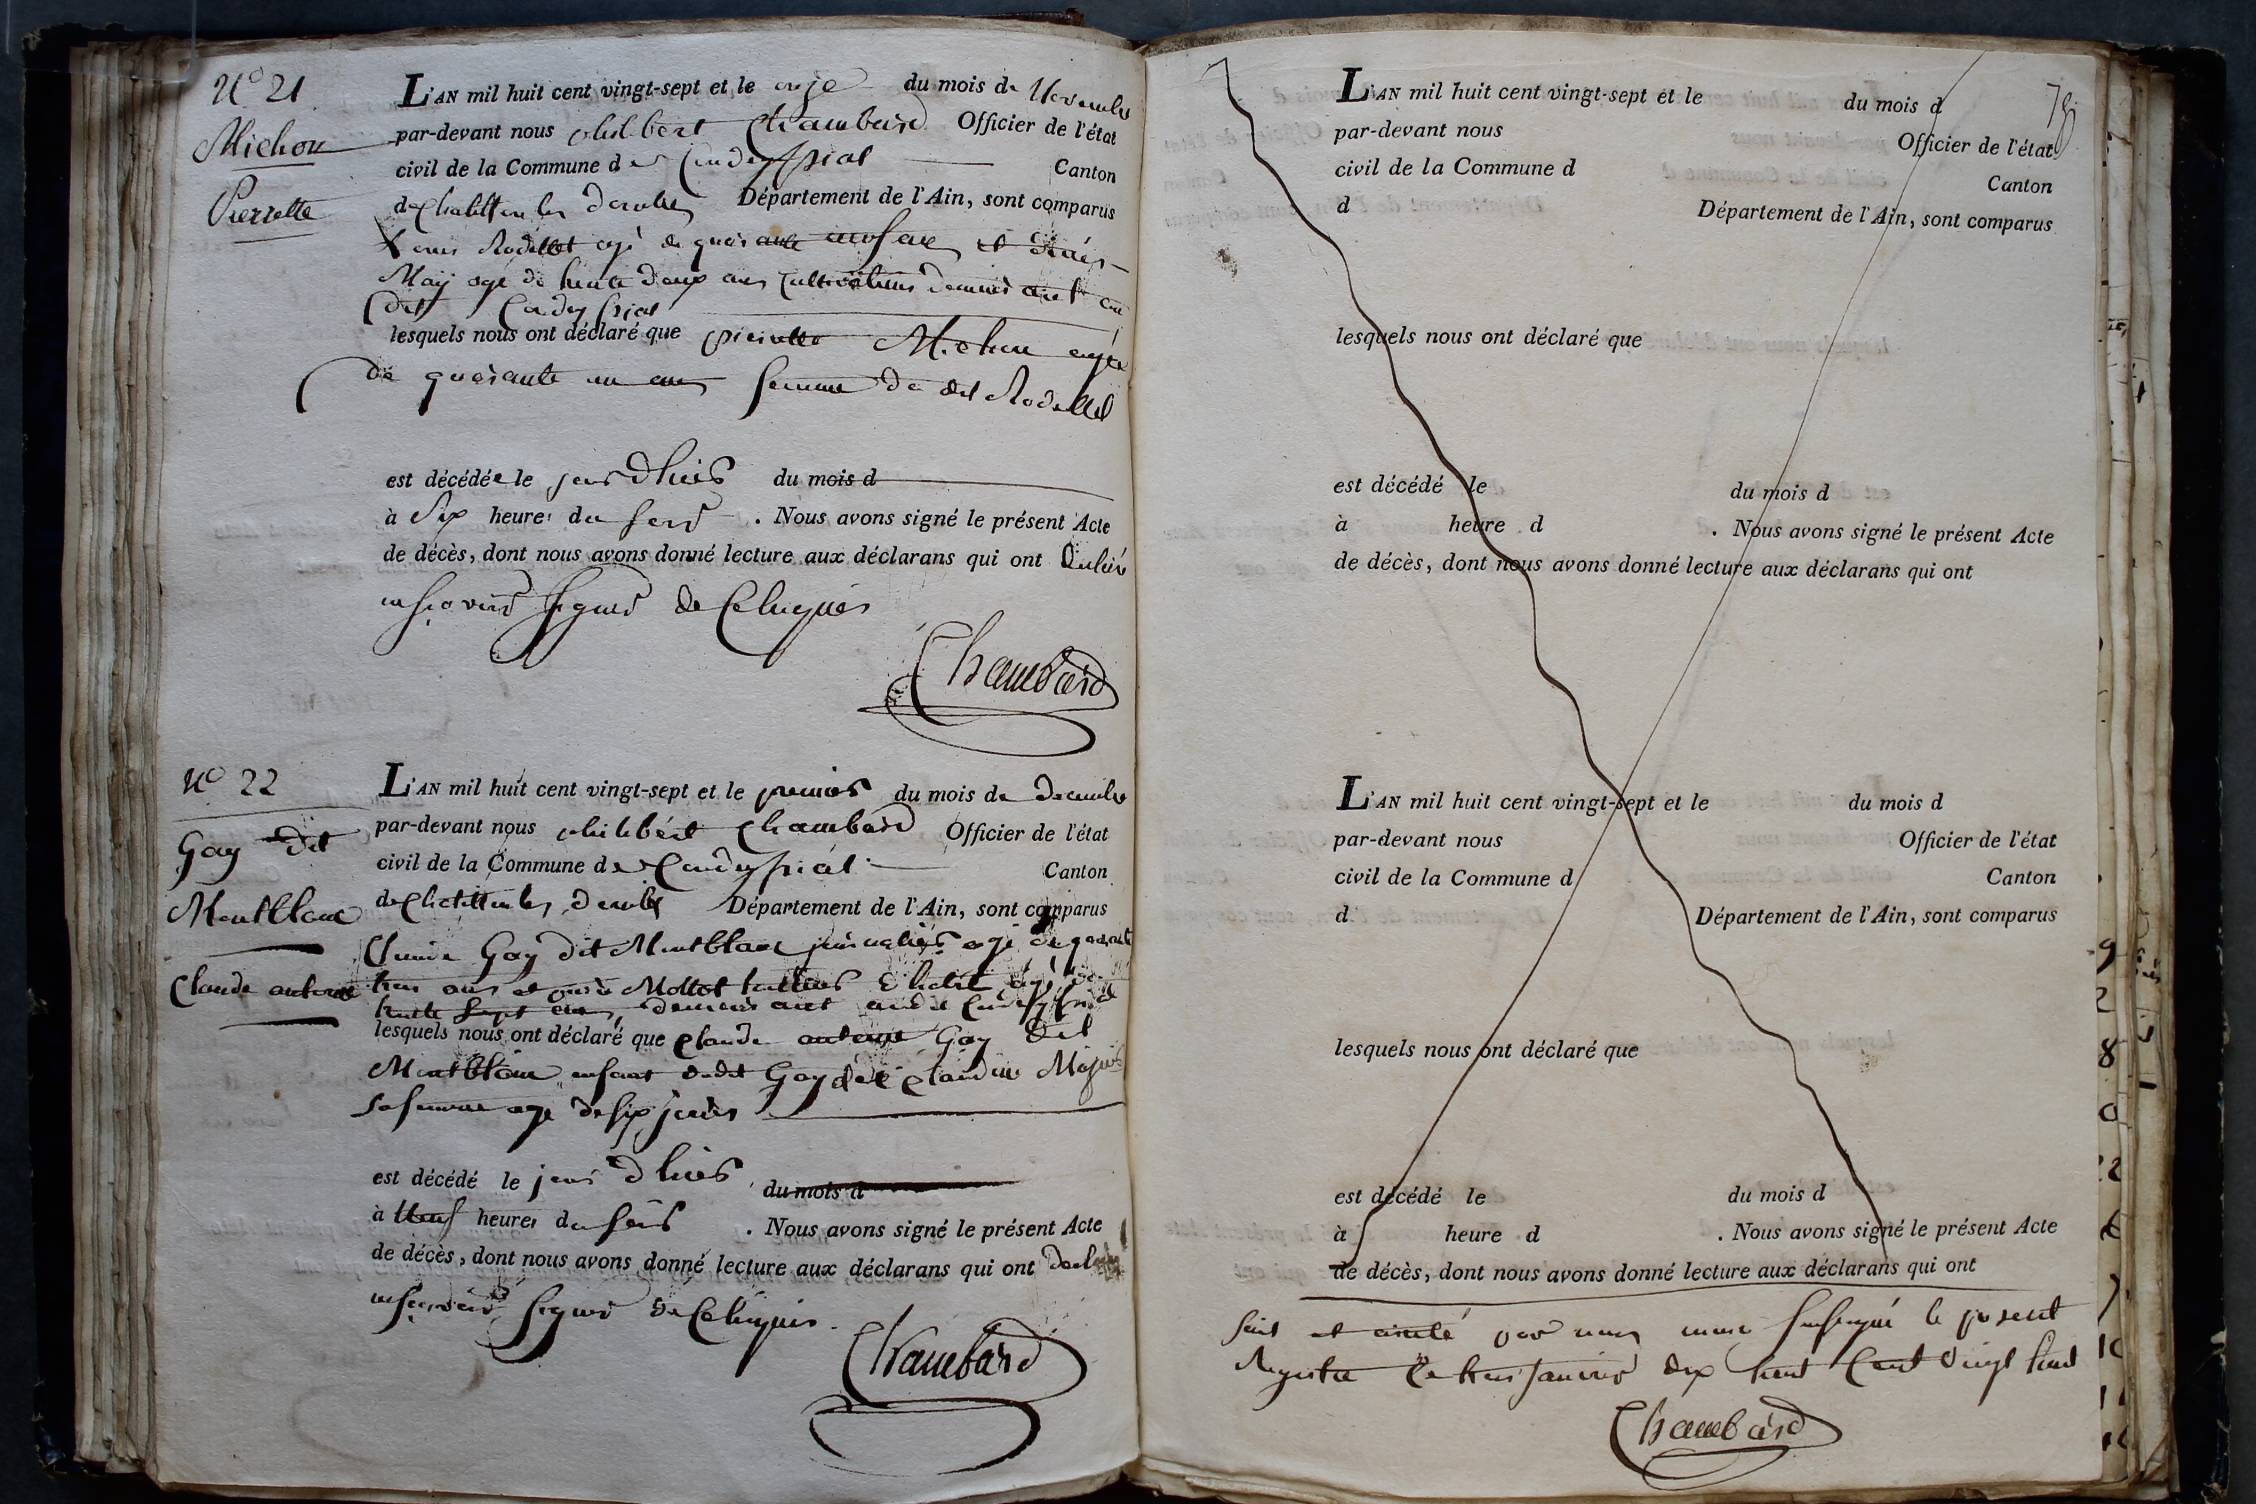 N° 21
Michon
Pierrette
L'AN mil huit cent vingt-sept et le onze du mois de Novembre
par-devant nous philibert Chambard Officier de l'état
civil de la Commune de Condeyssiat Canton
de Chatillon les dombes Département de l'Ain, sont comparus
Rodellet agé de quarante ans et
May agé de trente deux ans cultivateurs demeurant au
dit Condeyssiat
lesquels nous ont déclaré que pierrette Michon agée
de quarante un ans femme du dit Rodellet
est décédée le jour d'hier du mois d
à Six heures du soir . Nous avons signé le présent Acte
de décès, dont nous avons donné lecture aux déclarans qui ont declaré
ne savoir signer de ce enquis
Chambard
N° 22
Gay dit
Montblanc
Claude antoine
L'AN mil huit cent vingt-sept et le premier du mois de decembre
par-devant nous philibert Chambard Officier de l'état
civil de la Commune de Condeyssiat Canton
de Chatillon les dombes Département de l'Ain, sont comparus
Claude Gay dit Montblanc journalier agé de quarante
trois ans et Mottet tailleur d'habit agé de
trente sept ans, demeurant audit Condeyssiat
lesquels nous ont déclaré que Claude antoine Gay dit
Montblanc enfant dudit Gay et de claudine
sa femme agé de six jours
est décédé le jour d'hier du mois d
à Neuf heures du soir . Nous avons signé le présent Acte
de décès, dont nous avons donné lecture aux déclarans qui ont declaré
ne savoir signer de ce enquis
Chambard
78
L'AN mil huit cent vingt-sept et le du mois d
par-devant nous Officier de l'état
civil de la Commune d Canton
d Département de l'Ain, sont comparus
lesquels nous ont déclaré que
est décédé le du mois d
à heure d . Nous avons signé le présent Acte
de décès, dont nous avons donné lecture aux déclarans qui ont
L'AN mil huit cent vingt-sept et le du mois d
par-devant nous Officier de l'état
civil de la Commune d Canton
d Département de l'Ain, sont comparus
lesquels nous ont déclaré que
est décédé le du mois d
à heure d . Nous avons signé le présent Acte
de décès, dont nous avons donné lecture aux déclarans qui ont
et par nous maire soussigné le present
Registre le trois janvier dix huit Cent vingt huit
Chambard